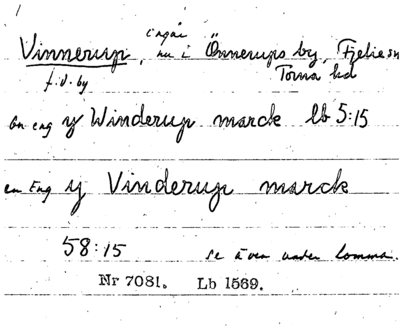 ingår
Vinnerup, nu i Önnerups by, Fjelie sn
f.d. by Torna hd
en eng y Winderup marck lb 5:15
en Eng y Vinderup marck
58:15 se även under Lomma.
Nr 7081. Lb 1569.